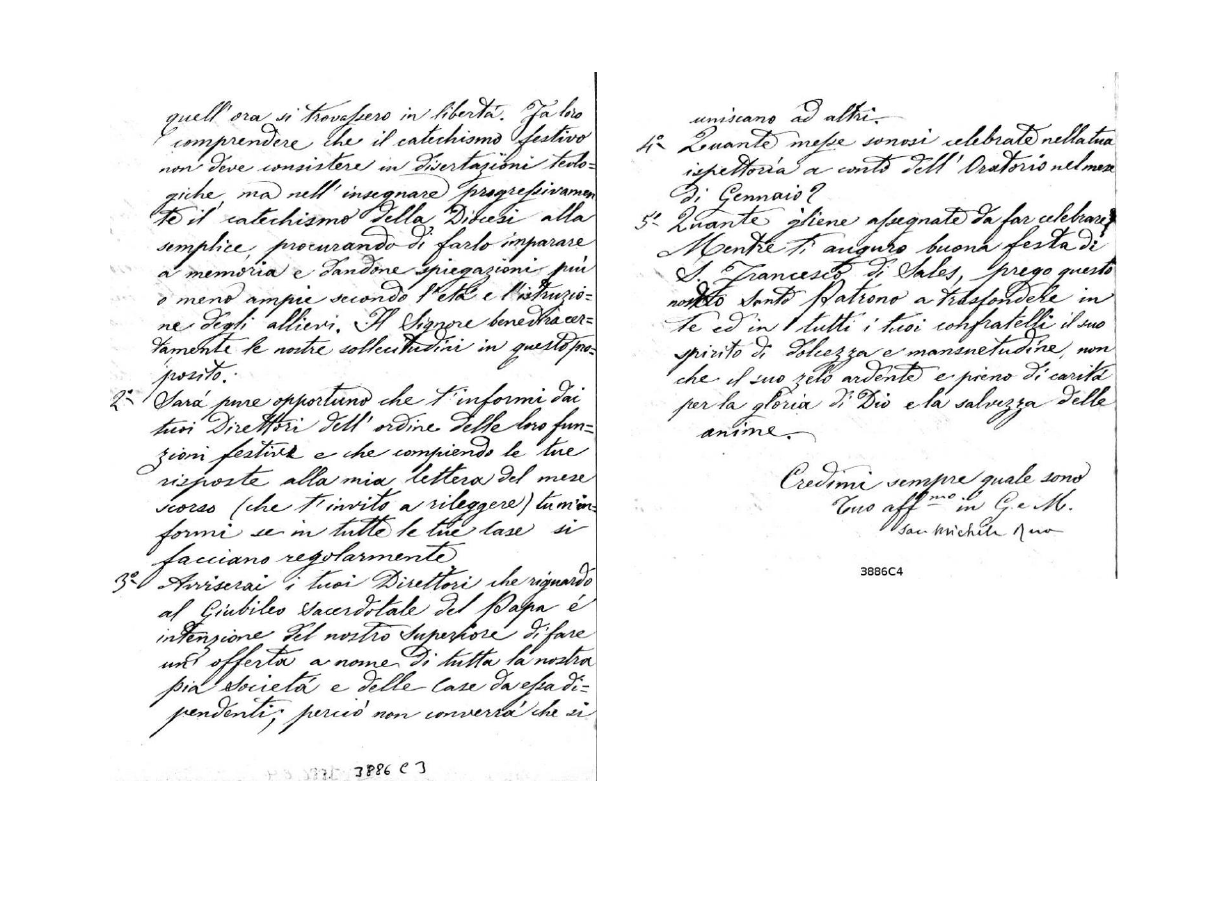 quell'ora si trovassero in libertà. Fa loro
comprendere che il catechismo festivo
non deve consistere in disertazioni teolo=
giche, ma nell'insegnare progressivamen
te il catechismo della Diocesi alla
semplice, procurando di farlo imparare
a memoria e dandone spiegazioni più
o meno ampie secondo l'età e l'istruzio=
ne degli allievi. Il Signore benedirà cer=
tamente le nostre sollecitudini in questo pro=
posito.
2º Sarà pure opportuno che t'informi dai
tuoi Direttori dell'ordine delle loro fun=
zioni festive e che compiendo le tue
risposte alla mia lettera del mese
scorso (che t'invito a rileggere) tu m'in=
formi se in tutte le tue Case si
facciano regolarmente
3º Avviserai i tuoi Direttori che riguardo
al Giubileo Sacerdotale del Papa é
intenzione del nostro Superiore di fare
un' offerta a nome di tutta la nostra
pia Società e delle Case da essa di=
pendenti; perciò non converrà che si
3886 C 3
uniscano ad altri.
4º Quante messe sonosi celebrate nella tua
ispettoria a conto dell'Oratorio nel mese
di Gennaio?
5º Quante gliene assegnate da far celebrare?
Mentre ti auguro buona festa di
S. Francesco di Sales, prego questo
nostro Santo Patrono a trasfondere in
te ed in tutti i tuoi confratelli il suo
spirito di dolcezza e mansuetudine, non
che il suo zelo ardente e pieno di carità
per la gloria di Dio e la salvezza delle
anime.
Credimi sempre quale sono
Tuo aff.mo in G. e M.
Sac Michele Rua
3886C4